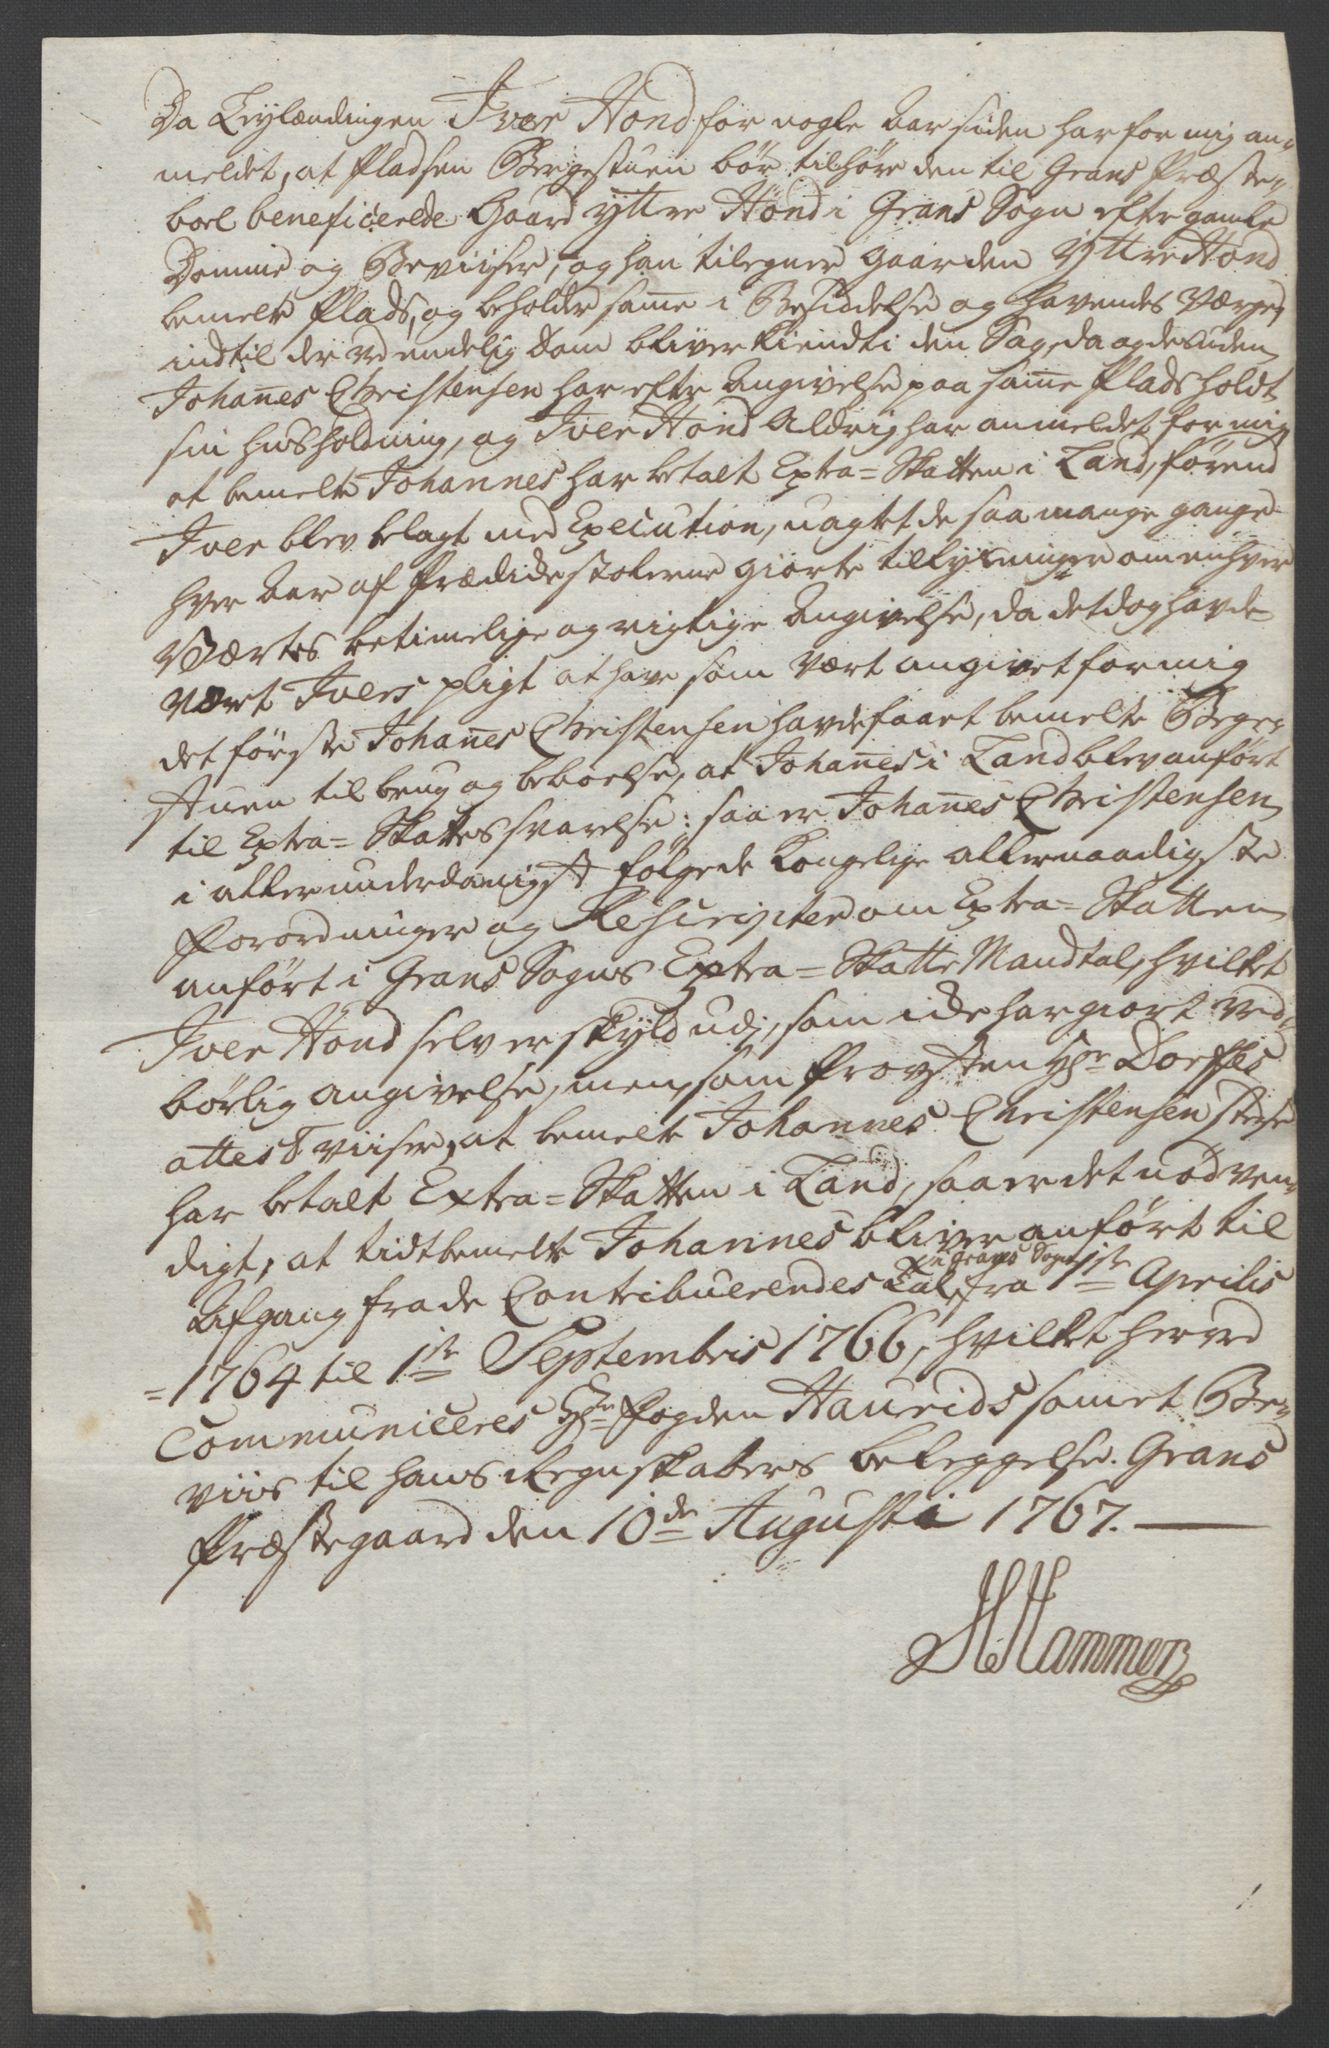 Da Leylændingen Iver Hond for nogle Aar siden har for mig an-
meldet, at Pladsen Bergestuen bør tilhøre den til Grans Præste-
boel beneficerede Gaard yttre Hönd i Grans Sogn efter gamle
Domme og Beviiser, og han tilegner Gaarden Yttre Hönd
bemelte Plads, og beholder same i Besiddelse og havendes Værge,
indtil der ved endelig Dom bliver kiendt i den Sag, da og desuden
Johanes Christensen har efter Angivelse paa same Plads holdt
sin huusholdning, og Iver Hönd Aldrig har anmeldet for mig
at bemelte Johannes har betalt Extra=Skatten i Land, førend
Iver blev belagt med Execution, uagtet de saa mange gange
hver Aar af Prædikestolerne giorte tillysninger om enhver
Værtes betimelige og rigtige Angivelse, da det dog havde
været Ivers pligt at have som Vært angivet for mig
det første Johanes Christensen havde faaet bemelte Berge-
stuen til brug og beboelse, at Johanes i Land blev anført
til Extra=Skattes svarelse: saa er Johanes Christensen
i allerunderdanigst følgede Kongelige allernaadigste
Forordninger og Rescripter om Extra=Skatten
anført i Grans Sogns Extra=Skatte Mandtal, hvilket
Iver Hönd selv er skyld udj, som icke har giort ved-
børlig angivelse, men som Provsten Hr Dorphs
attest viiser, at bemelte Johannes Christensen
har betalt Extra=Skatten i Land, saa er det nødven-
digt, at tidtbemelte Johannes bliver anført til
Afgang fra de Contribuerendes Tal i Grans Sogn fra 1ste Aprilis
1764 til 1ste Septembris 1766, hvilket herved
Communiceres Hr Fogden Haurids samt Be-
viis til hans Regnskabers beleggelse. Grans
Præstegaard den 10de Augusti 1767.
H Hammer